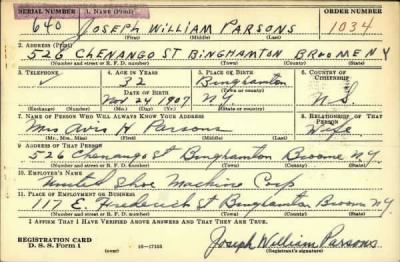 SERIAL NUMBER 1. NAME (Print) ORDER NUMBER
640 JOSEPH WILLIAM PARSONS 1034
(First) (Middle) (Last)
2. ADDRESS (Print)
526 CHENANGO ST BINGHAMTON BROOME N Y
(Number and street or R. F. D. number) (Town) (County) (State)
3. TELEPHONE 4. AGE IN YEARS 5. PLACE OF BIRTH 6. COUNTRY OF CITIZENSHIP
32 Binghamton
DATE OF BIRTH (Town or county)
Nov 24 1907 N.Y. U.S.
(Exchange) (Number) (Mo.) (Day) (Yr.) (State or country)
7. NAME OF PERSON WHO WILL ALWAYS KNOW YOUR ADDRESS 8. RELATIONSHIP OF THAT PERSON
Mrs Avis H Parsons Wife
(Mr., Mrs., Miss) (First) (Middle) (Last)
9. ADDRESS OF THAT PERSON
526 Chenango St Binghamton Broome N.Y.
(Number and street or R. F. D. number) (Town) (County) (State)
10. EMPLOYER'S NAME
United Shoe Machine Corp
11. PLACE OF EMPLOYMENT OR BUSINESS
117 E. Frederick St Binghamton Broome N.Y.
(Number and street or R. F. D. number) (Town) (County) (State)
I AFFIRM THAT I HAVE VERIFIED ABOVE ANSWERS AND THAT THEY ARE TRUE.
REGISTRATION CARD
D. S. S. Form 1 16-17105 Joseph William Parsons
(Registrant's signature)